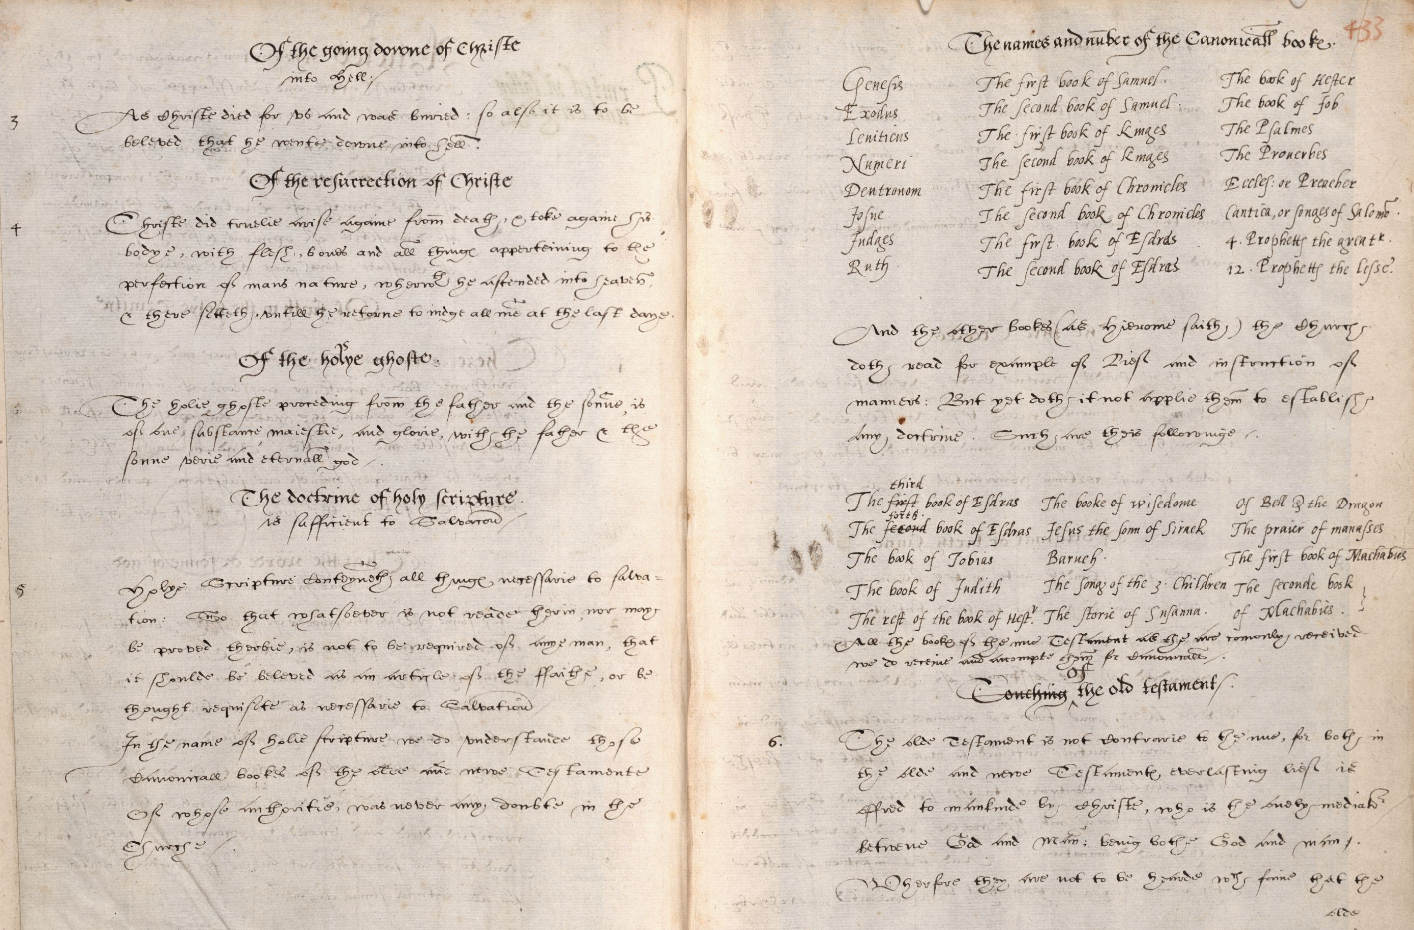 Of the going downe of Christe
into Hell.
3
As Christe died for us and was buried: so also it is to be
beleved that he wente downe into hell.
Of the resurrection of Christe
4
Christe did truelie arise againe from death, & toke againe his
bodye, with flesh, bones and all things apperteining to the
perfection of mans nature, wherwth he ascended into heaven,
& there sitteth, untill he retorne to iudge all men at the last daye.
Of the holye ghoste.
The holie ghoste proceding from the father and the sonne, is
of one substance maiestie, and glorie, with the father & the
sonne verie and eternall god.
The doctrine of holy scripture
is sufficient to Salvacion
5
Holye Scripture conteyneth all things necessarie to salva=
tion: So that whatsoever is not reade therin nor may
be proved therbie, is not to be required of anye man, that
it shoulde be beleved as an article of the ffaithe, or be
thought requisite as necessarie to Salvation
In the name of holie scripture we do understande those
Canonicall bookes of the olde and newe Testamente
Of whose authoritie was never any doubte in the
Churche.
433
The names and nūber of the Canonicall books.
Genesis The first book of Samuel. The book of Hester
Exodus The second book of Samuel. The book of Job
Leuiticus The first book of kinges The Psalmes
Numeri The second book of kinges The Prouerbes
Deutronom The first book of Chronicles Eccles: or Preacher
Josue The second book of Chronicles Cantica, or songes of Salomō.
Judges The first book of Esdras 4. Prophetts the greatr.
Ruth The second book of Esdras 12. Prophetts the lesse.
And the other bookes (as Hierome saith) the Church
doth read for example of liefe and instruction of
manners: But yet doth it not applie them to establishe
any doctrine. Such are theis followinge.
third
The first book of Esdras The booke of wisedome Of Bell & the Dragon
forth
The second book of Esdras Jesus the sonn of Sirack The praier of manasses
The book of Tobias Baruch. The first book of Machabies
The book of Judith The song of the 3. Children The seconde book
The rest of the book of Hestr. The storie of Susanna. of Machabies.
All the books of the nue Testament as the are comonly received
we do receive and accompte them for Canonicall.
Of
Touching the old testament.
6.
The olde Testament is not contrarie to the nue, for both in
the olde and newe Testament, everlasting liefe is
offred to mankinde by Christe, who is the onely mediator
betwene God and man: being bothe God and man.
Wherfore they are not to be hearde wch faine that the
olde